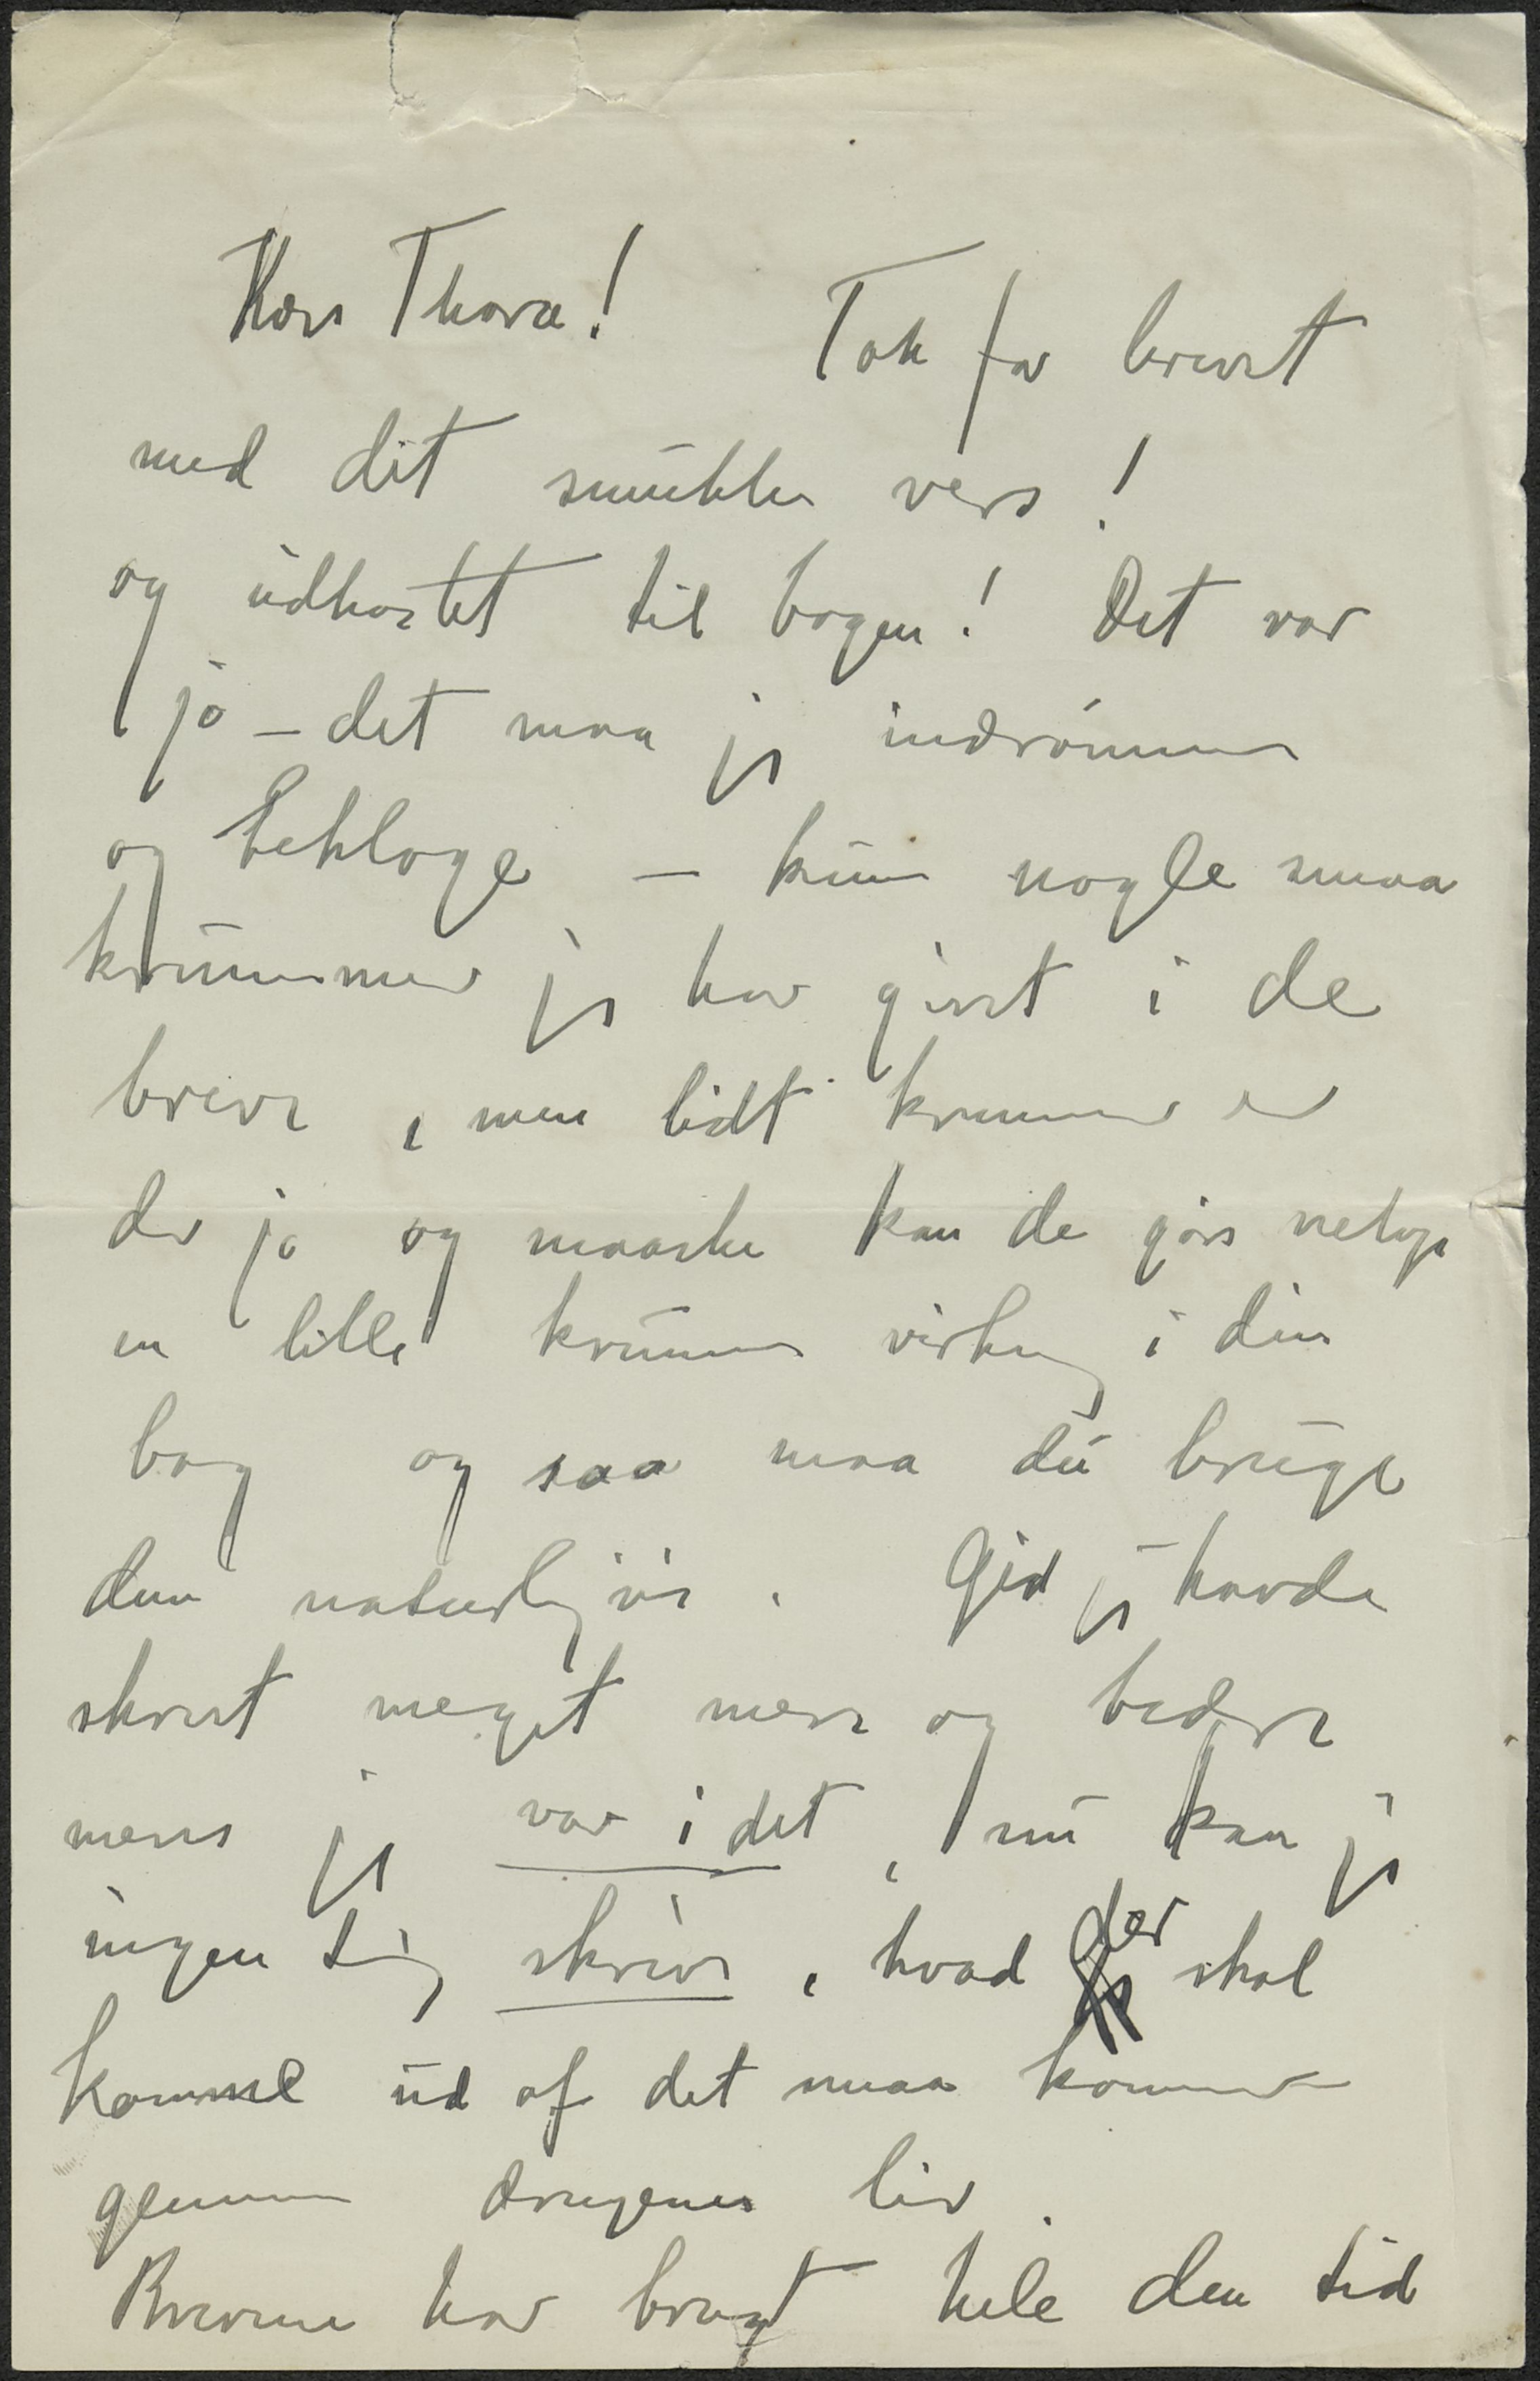 Kære Thora! Tak for brevet
med dit smukke vers!
og udkastet til bogen! Det var
jo – det maa jeg indrömme
og beklage – kun nogle smaa
krummer jeg har givet i de
breve, men lidt krumme er
der jo og maaske kan de göre netop
en lille krumme virkning i din
bog og saa maa du bruge
dem naturligvis. Gid jeg havde
skrevet meget mere og bedre
mens jeg var i det, nu kan jeg
ingen ting skrive, hvad der skal
komme ud af det maa komme
gennem drengenes liv.
Brevene har bragt hele den tid